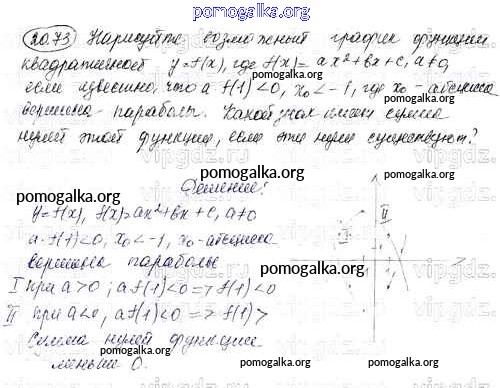 pomogalka.org
20.73 Нарисуйте возможный график функции
квадратичной y=f(x), где f(x)=ax²+bx+c, a≠0
если известно, что a·f(1)<0, x₀<-1, где x₀ - абсцисса
вершины параболы. Какой знак имеет сумма
нулей этой функции, если эти нули существуют?
pomogalka.org
Решение:
y=f(x), f(x)=ax²+bx+c, a≠0
a·f(1)<0, x₀<-1, x₀-абсцисса
вершины параболы
I при a>0; a f(1)<0 => f(1)<0
II при a<0, a f(1)<0 => f(1)>
Сумма нулей функции
меньше 0.
I
II
pomogalka.org
pomogalka.org
pomogalka.org
pomogalka.org
pomogalka.org